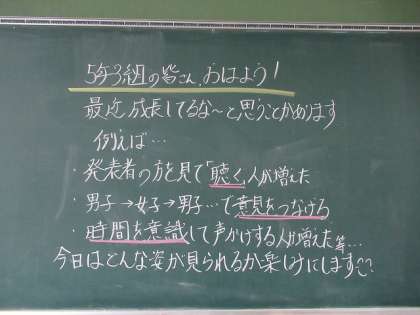 5年3組の皆さん、おはよう!
最近成長してるな〜と思うことがあります
例えば…
・発表者の方を見て「聴く」人が増えた
・男子→女子→男子…で意見をつなげる
・時間を意識して声かけする人が増えた等…
今日はどんな姿が見られるか楽しみにします